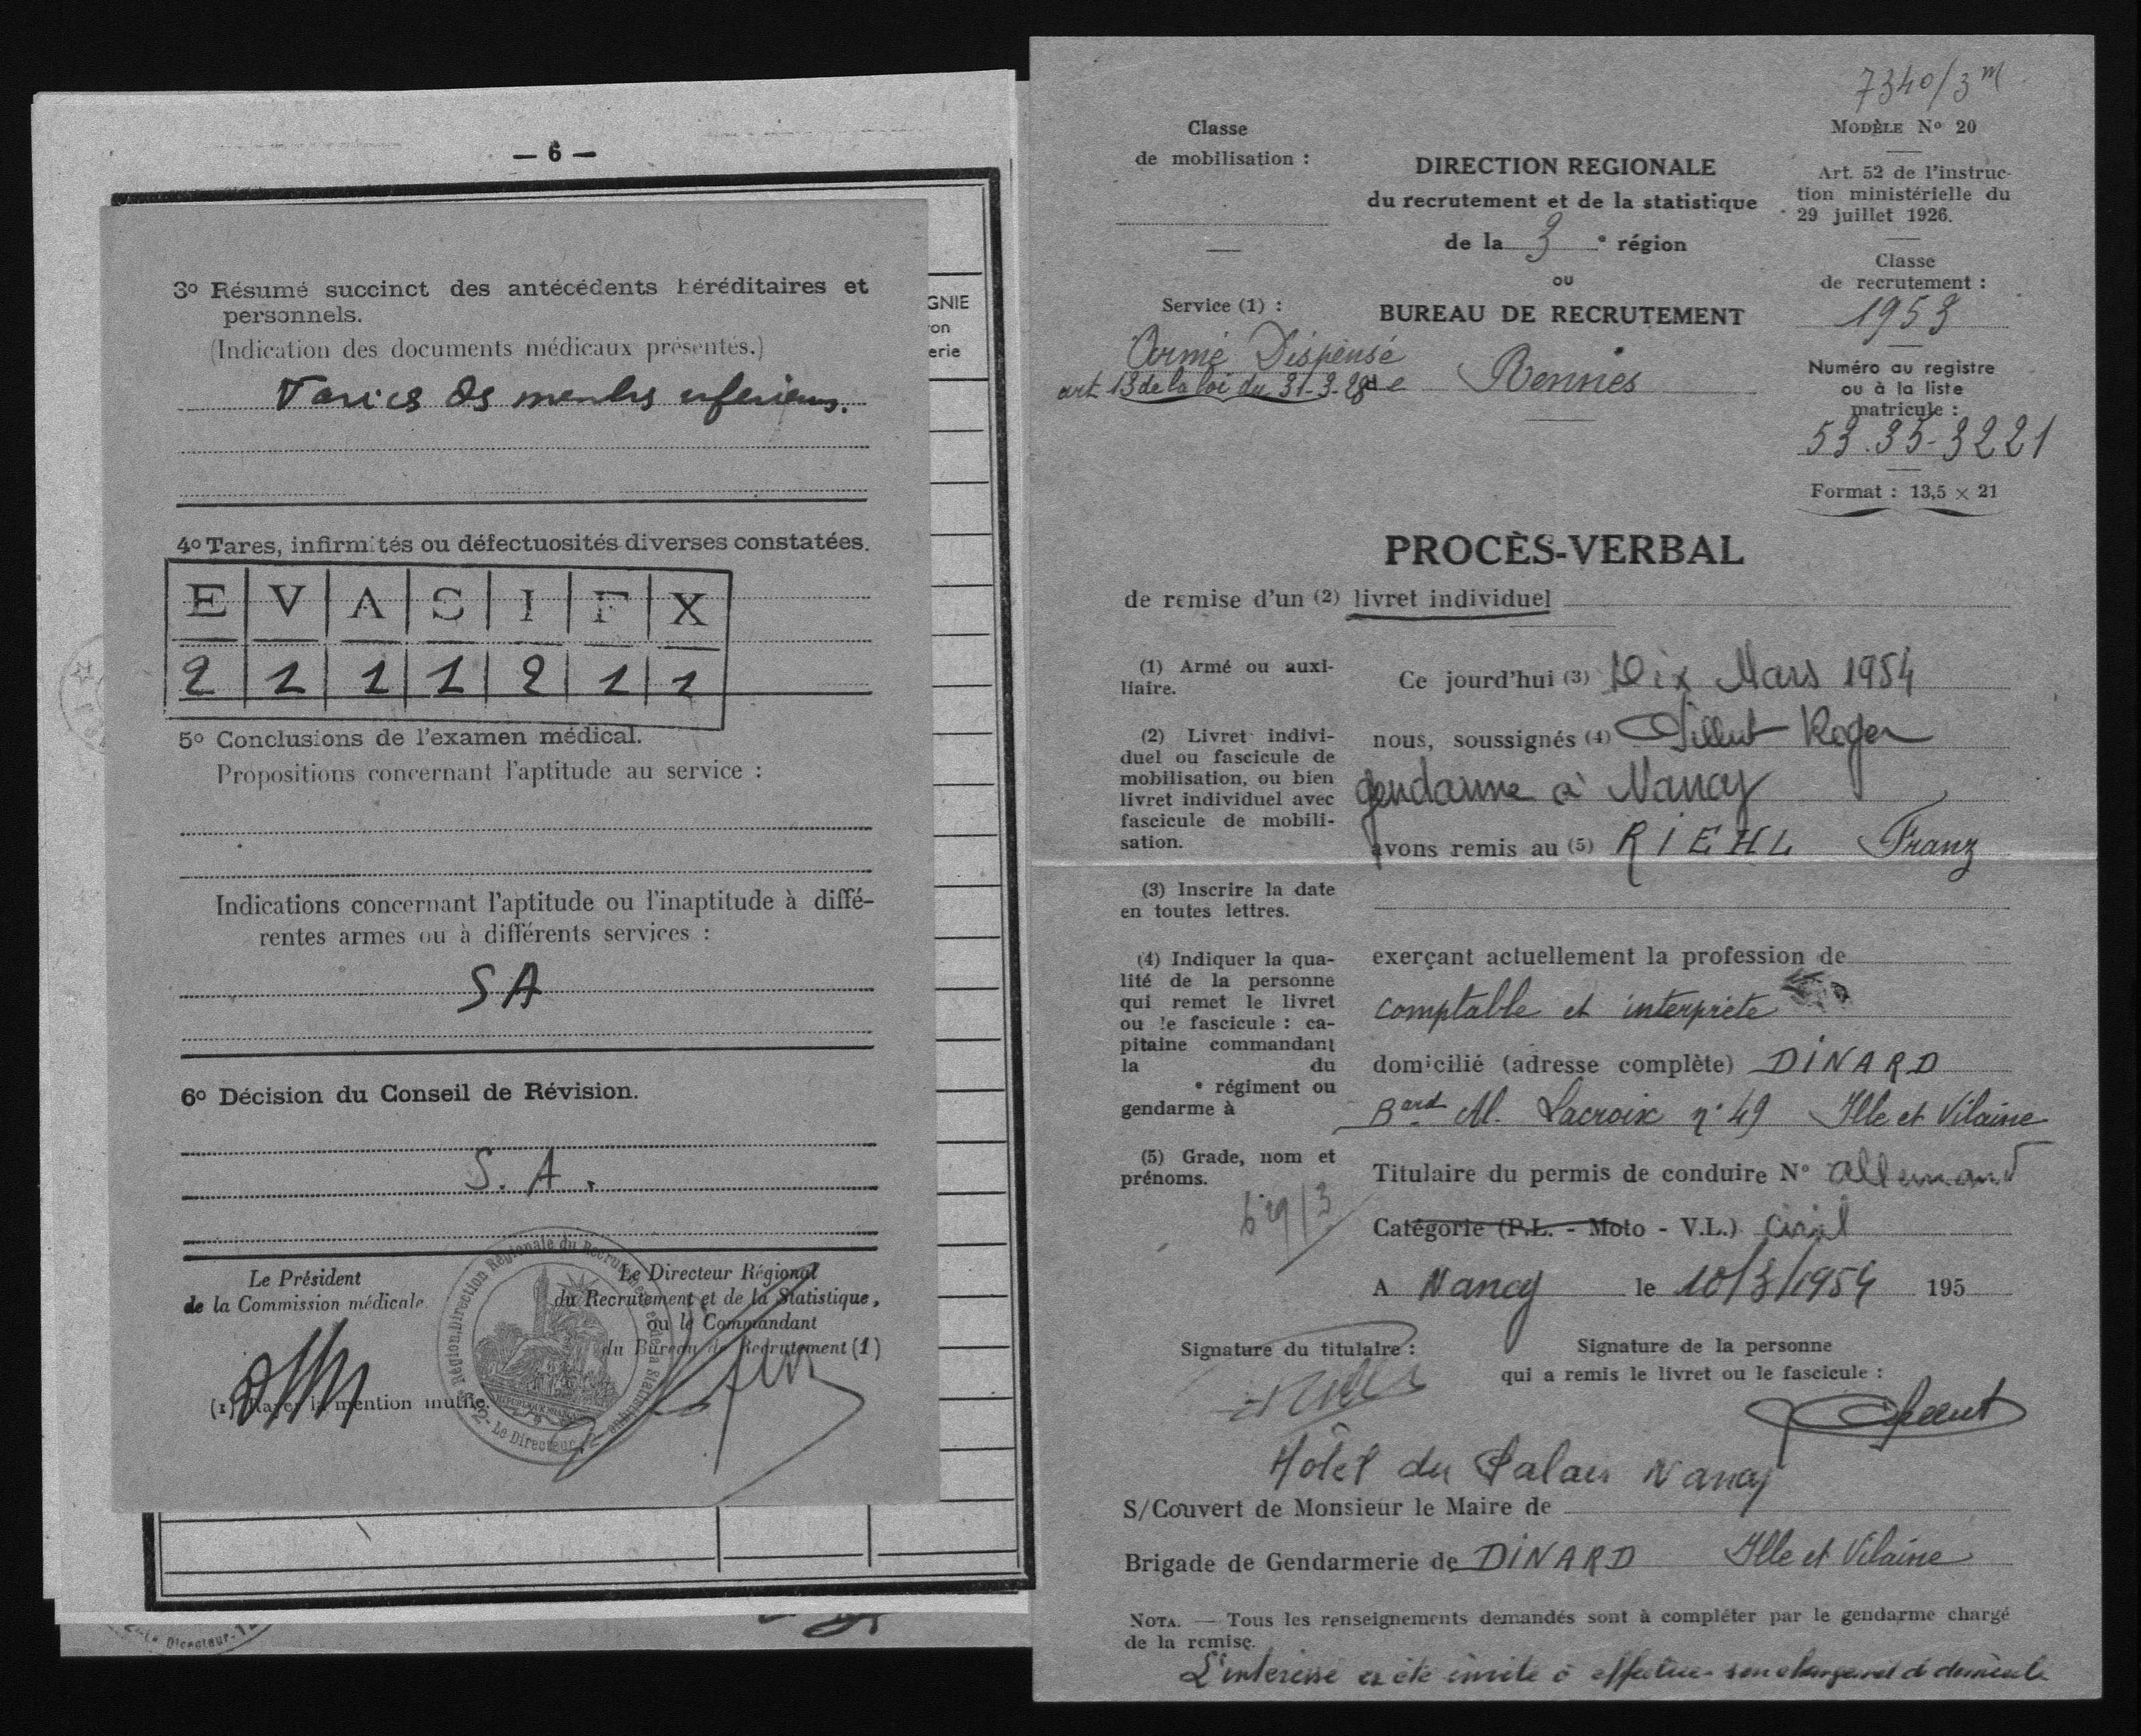 — 6 —
GNIE
on
erie
3º Résumé succinct des antécédents héréditaires et
personnels.
(Indication des documents médicaux présentés.)
Varices des membres inférieurs.
4º Tares, infirmités ou défectuosités diverses constatées.
E V A S I F X
2 1 1 1 2 1 1
5º Conclusions de l'examen médical.
Propositions concernant l'aptitude au service :
Indications concernant l'aptitude ou l'inaptitude à diffé-
rentes armes ou à différents services :
SA
6º Décision du Conseil de Révision.
S. A.
Le Président
de la Commission médicale
Le Directeur Régional
du Recrutement et de la Statistique,
ou le Commandant
du Bureau de Recrutement (1)
(1) Rayer la mention inutile.
7340/3 m
Classe
de mobilisation :
Service (1) :
Armé Dispensé
art 13 de la loi du 31-3-28
DIRECTION REGIONALE
du recrutement et de la statistique
de la 3 e région
ou
BUREAU DE RECRUTEMENT
de Rennes
MODÈLE Nº 20
Art. 52 de l'instruc-
tion ministérielle du
29 juillet 1926.
Classe
de recrutement :
1953
Numéro au registre
ou à la liste
matricule :
53.35-3221
Format : 13,5 × 21
PROCÈS-VERBAL
de remise d'un (2) livret individuel
Ce jourd'hui (3) Dix Mars 1954
nous, soussignés (4) Roger
gendarme à Nancy
avons remis au (5) RIEHL Franz
exerçant actuellement la profession de
comptable et interprète
domicilié (adresse complète) DINARD
Bard M. Lacroix n° 49 Ille et Vilaine
Titulaire du permis de conduire Nº allemand
Catégorie (P.L. - Moto - V.L.) civil
A Nancy le 10/3/1954 195
(1) Armé ou auxi-
liaire.
(2) Livret indivi-
duel ou fascicule de
mobilisation, ou bien
livret individuel avec
fascicule de mobili-
sation.
(3) Inscrire la date
en toutes lettres.
(4) Indiquer la qua-
lité de la personne
qui remet le livret
ou le fascicule : ca-
pitaine commandant
la du
e régiment ou
gendarme à
(5) Grade, nom et
prénoms.
Signature du titulaire :
Signature de la personne
qui a remis le livret ou le fascicule :
Hôtel du Palais Nancy
S/Couvert de Monsieur le Maire de
Brigade de Gendarmerie de DINARD Ille et Vilaine
NOTA. — Tous les renseignements demandés sont à compléter par le gendarme chargé
de la remise.
L'intéressé a été invité à effectuer son changement de domicile